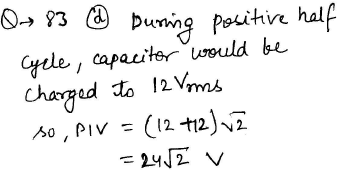 Q→ 83 (d) During positive half
cycle, capacitor would be
charged to 12 Vrms
so, PIV = (12 +12)√2
= 24√2 V